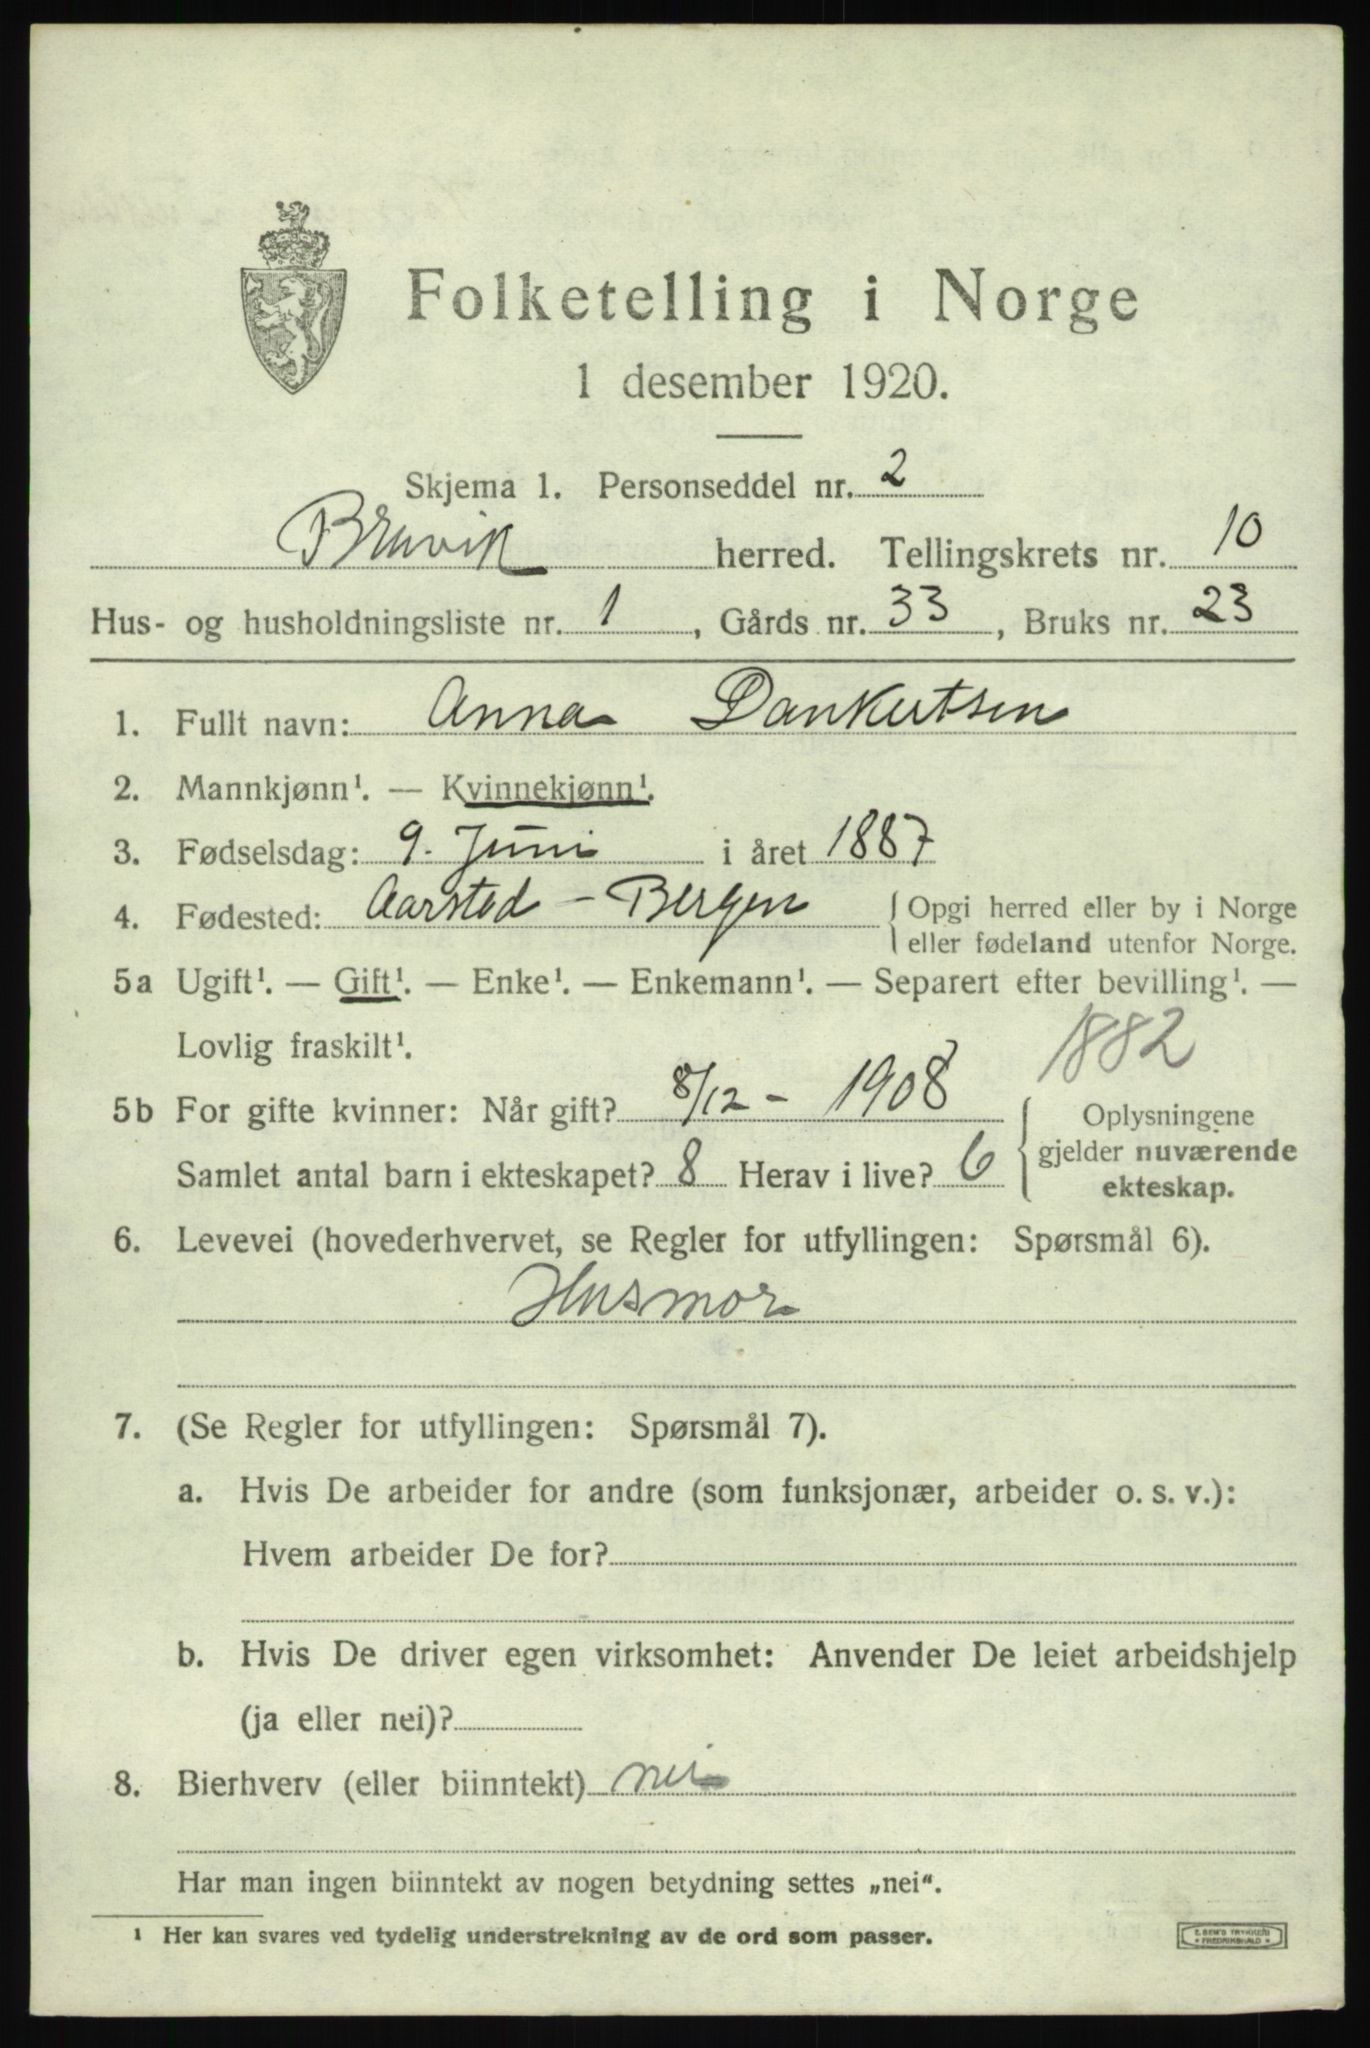 Folketelling i Norge
1 desember 1920.
Skjema 1. Personseddel nr. 2
Bruvik herred. Tellingskrets nr. 10
Hus- og husholdningsliste nr. 1, Gårds nr. 33, Bruks nr. 23
1. Fullt navn: Anna Dankertsen
2. Mannkjønn¹. — Kvinnekjønn¹.
3. Fødselsdag: 9. Juni i året 1887
4. Fødested: Aarsted - Bergen { Opgi herred eller by i Norge
eller fødeland utenfor Norge.
5a Ugift¹. — Gift¹. — Enke¹. — Enkemann¹. — Separert efter bevilling¹. —
Lovlig fraskilt¹. 1882
5b For gifte kvinner: Når gift? 8/12 - 1908 { Oplysningene
gjelder nuværende
Samlet antal barn i ekteskapet? 8 Herav i live? 6 ekteskap.
6. Levevei (hovederhvervet, se Regler for utfyllingen: Spørsmål 6).
Husmor
7. (Se Regler for utfyllingen: Spørsmål 7).
a. Hvis De arbeider for andre (som funksjonær, arbeider o. s. v.):
Hvem arbeider De for?
b. Hvis De driver egen virksomhet: Anvender De leiet arbeidshjelp
(ja eller nei)?
8. Bierhverv (eller biinntekt) nei
Har man ingen biinntekt av nogen betydning settes „nei“.
¹ Her kan svares ved tydelig understrekning av de ord som passer.
E. SEM'S TRYKKERI
* FREDRIKSHALD *